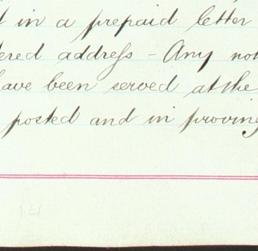 in a prepaid letter
address - Any
have been served at the
posted and in